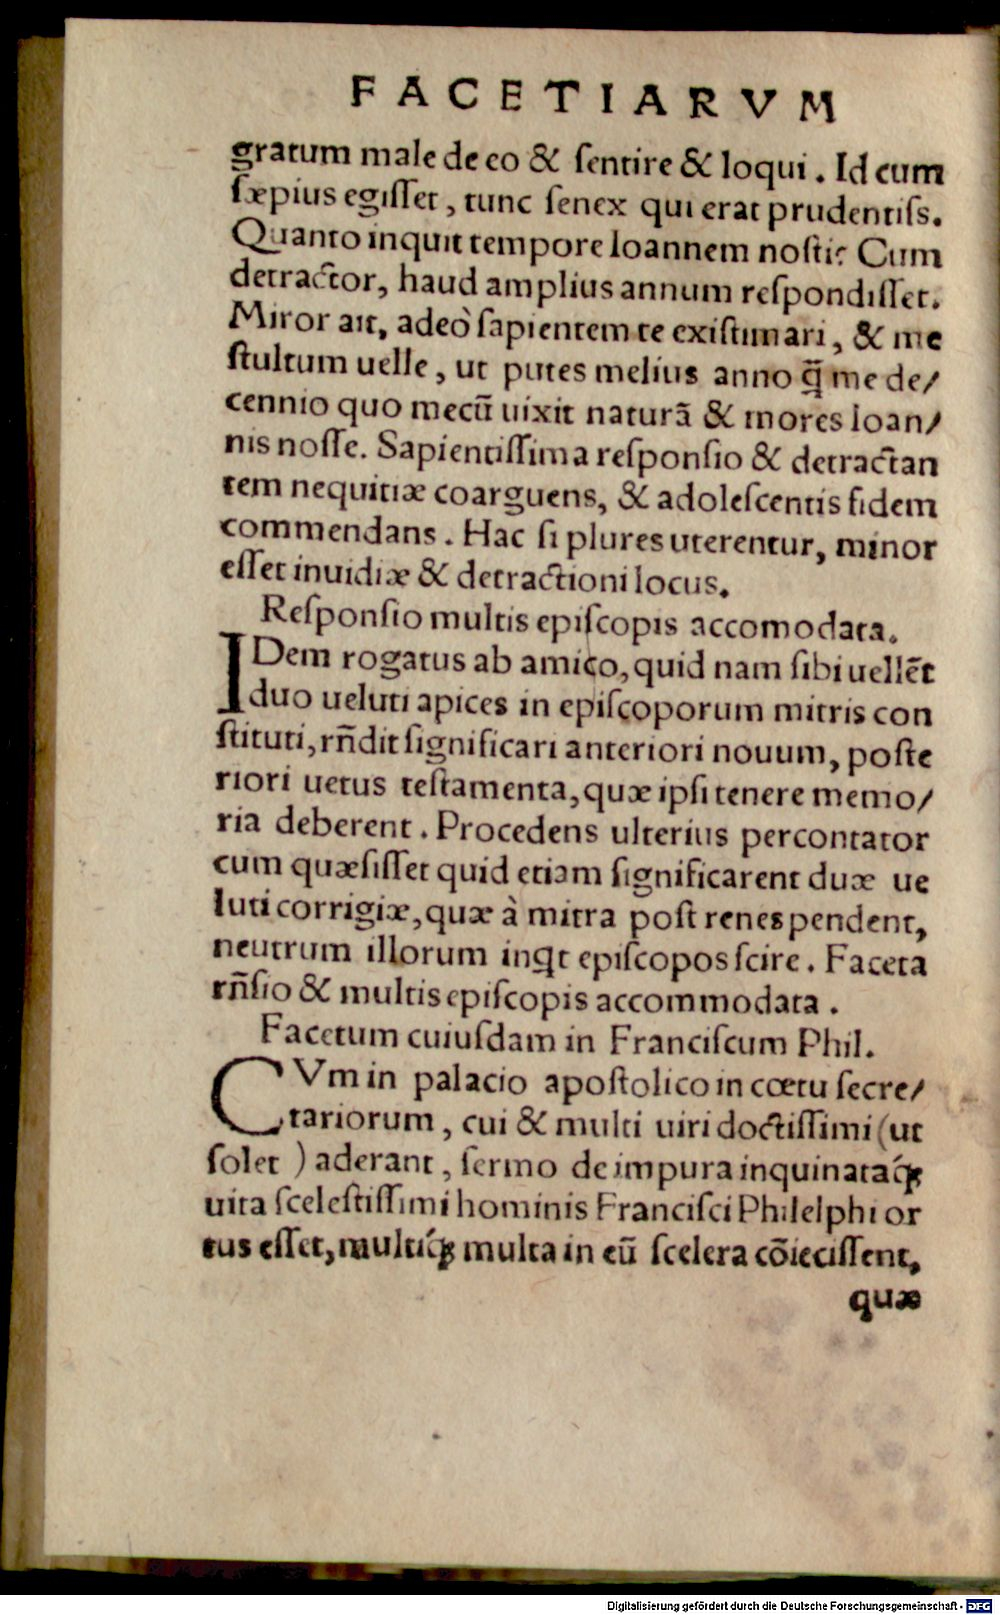 FACETIARVM
gratum male de eo & ſentire & loqui. Id cum
ſæpius egiſſet, tunc ſenex qui erat prudentiſs.
Quanto inquit tempore Ioannem noſti? Cum
detractor, haud amplius annum reſpondiſſet.
Miror ait, adeò ſapientem te exiſtimari, & me
ſtultum uelle, ut putes melius anno q̃ me de/
cennio quo mecũ uixit naturã & mores Ioan/
nis noſſe. Sapientiſſima reſponſio & detractan
tem nequitiæ coarguens, & adoleſcentis fidem
commendans. Hac ſi plures uterentur, minor
eſſet inuidiæ & detractioni locus.
Reſponſio multis epiſcopis accomodata.
IDem rogatus ab amico, quid nam ſibi uellẽt
duo ueluti apices in epiſcoporum mitris con
ſtituti, rñdit ſignificari anteriori nouum, poſte
riori uetus teſtamenta, quæ ipſi tenere memo/
ria deberent. Procedens ulterius percontator
cum quæſiſſet quid etiam ſignificarent duæ ue
luti corrigiæ, quæ à mitra poſt renes pendent,
neutrum illorum inꝗt epiſcopos ſcire. Faceta
rñſio & multis epiſcopis accommodata.
Facetum cuiuſdam in Franciſcum Phil.
CVm in palacio apoſtolico in cœtu ſecre/
tariorum, cui & multi uiri doctiſſimi (ut
ſolet) aderant, ſermo de impura inquinataq́;
uita ſceleſtiſſimi hominis Franciſci Philelphi or
tus eſſet, multiq́; multa in eũ ſcelera cõieciſſent,
quæ
Digitalisierung gefördert durch die Deutsche Forschungsgemeinschaft - DFG